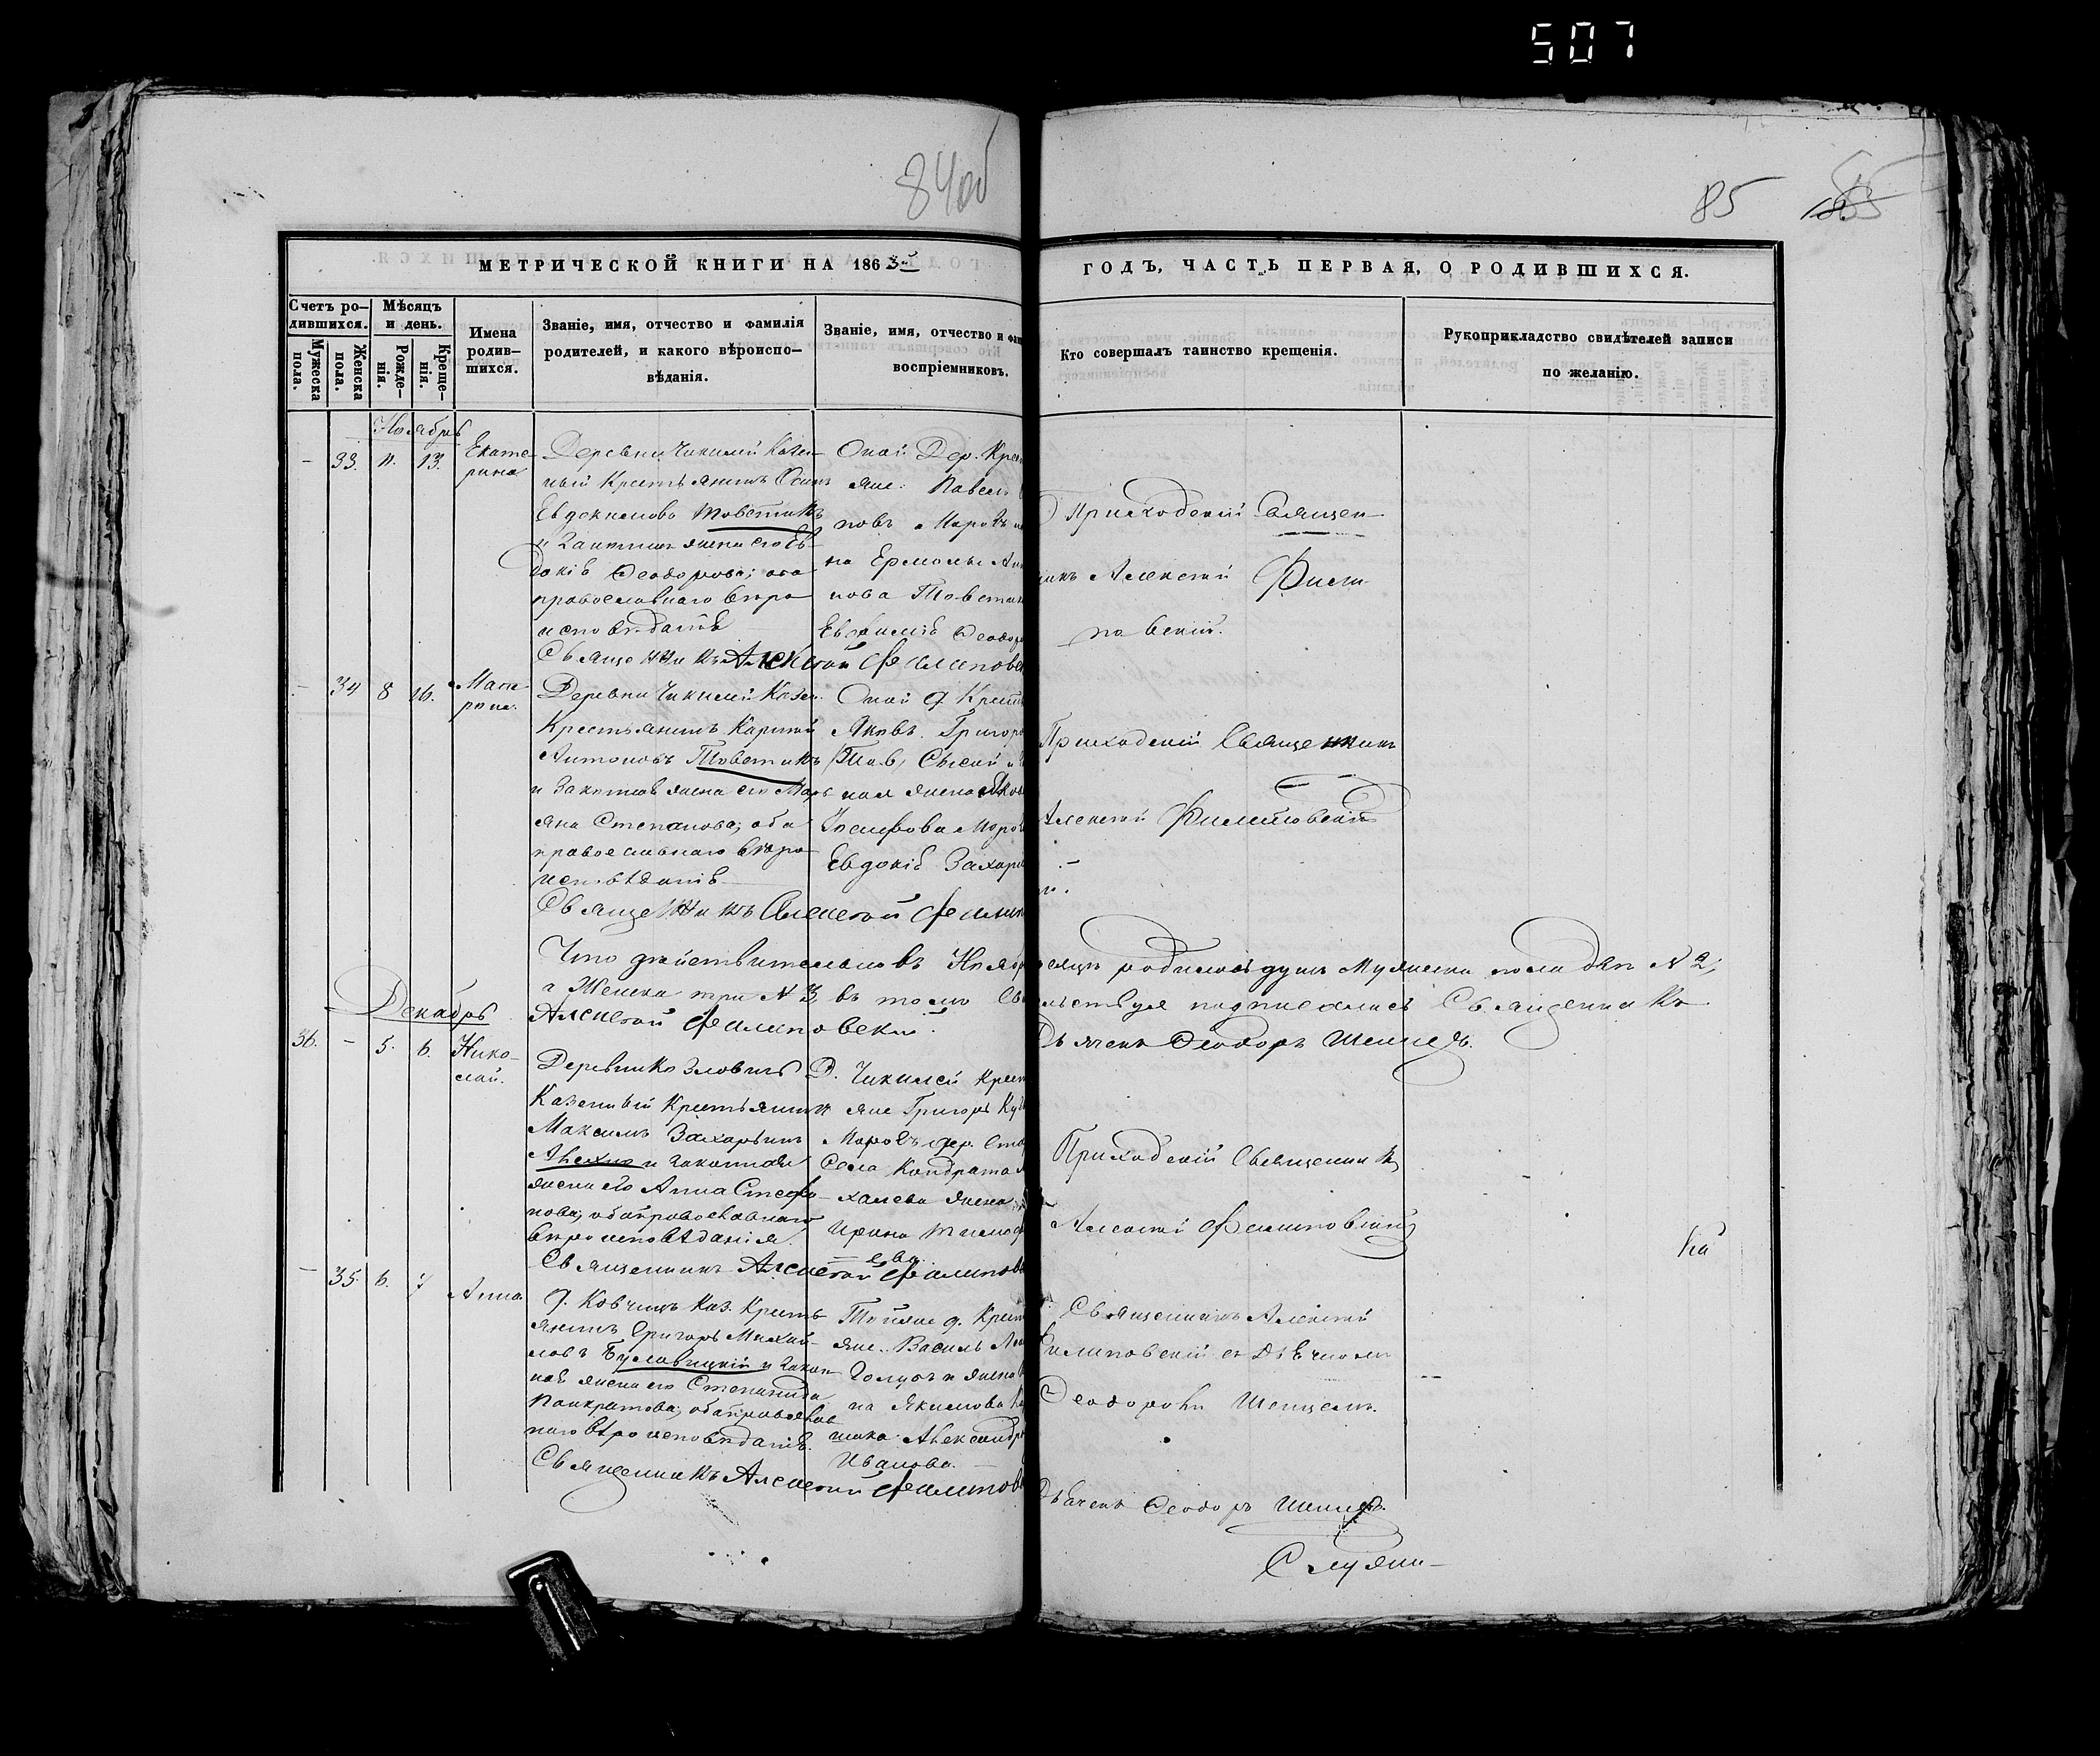 507
84об
85
МЕТРИЧЕСКОЙ КНИГИ НА 1863й
ГОДЪ, ЧАСТЬ ПЕРВАЯ, О РОДИВШИХСЯ.
Счетъ ро-
дившихся.
Мужеска
пола.
Женска
пола.
Мѣсяцъ
и день.
Рожде-
нія.
Креще-
нія.
Имена
родив-
шихся.
Званіе, имя, отчество и фамилія
родителей, и какого вѣроиспо-
вѣданія.
Званіе, имя, отчество и фам
воспріемниковъ.
Кто совершалъ таинство крещенія.
Рукоприкладство свидѣтелей записи
по желанію.
Ноябрь
- 33. 11. 13.
Екате-
рина
Деревни Чикилей Казен-
ный Крестьянинъ Осипъ
Евдокимовъ Товстикъ
и законная жена его Ев-
докія Ѳеодорова; оба
православнаго вѣро-
исповѣданія
Священникъ Алексѣй Филиповск
Оной Дер. Крест
яне: Павелъ
повъ Марозъ
на Ермолы
нова Товстик
Евфимія Ѳеодор
Приходскій Священ-
никъ Алексѣй Фили-
повскій.
- 34 8 16.
Мат-
рона.
Деревни Чикилей Казен.
Крестьянинъ Карпъ
Антоновъ Товстикъ
и Законная жена его Марь-
яна Степанова; оба
православнаго вѣро-
исповѣданія
Священникъ Алексѣй Филип
Оной д. Крест
Яковъ Григоръ
ная жена Яков
Евдокія Захаров
Приходскій Священникъ
Алексѣй Филиповскій
Что дѣйствительно въ Ноябр
сяцѣ родилось душъ Мужеска пола двѣ N 2,
а Женска три N 3, въ томъ св
льствуя подписались Священникъ
Алексѣй Филиповскій.
Дьячекъ Ѳеодоръ Шенецъ.
Декабрь
36. - 5. 6.
Нико-
лай.
Деревни Козловичъ
Казенный Крестьянинъ
Максимъ Захарьинъ
и законная
жена его Анна Стефа-
нова; оба православнаго
вѣроисповѣданія.
Священникъ Алексѣй Филипов
Д. Чикилей Крест
яне Григорь
Марозъ дер.
Села Кондрата
халева жена
Ирина Тимоф
ева.
Приходскій Священникъ
Алексѣй Филиповскій
- 35. 6. 7
Анна.
Д. Ковчицъ Каз. Кресть-
янинъ Григорь Михай-
ловъ Буславицкій и закон-
ная жена его Степанида
Панкратова; оба православ-
наго вѣроисповѣданія.
Священникъ Алексѣй Филипов
Тойже д. Крест
яне. Василь
Голубъ и жена
на Якимова
Александр
Иванова.
Священникъ Алексѣй
Филиповскій съ Дьячкомъ
Ѳеодоромъ Шенцемъ.
Дьячекъ Ѳеодоръ Шенецъ.